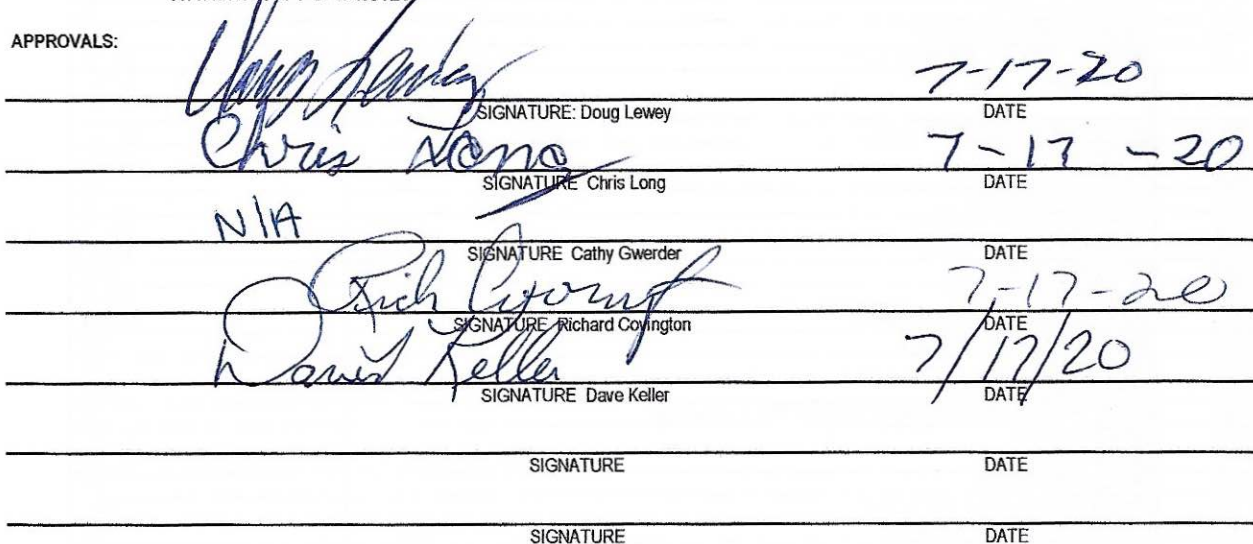 APPROVALS:
Doug Lewey 7-17-20
SIGNATURE: Doug Lewey DATE
Chris Long 7-17-20
SIGNATURE Chris Long DATE
N/A
SIGNATURE Cathy Gwerder DATE
Rich Covington 7-17-20
SIGNATURE Richard Covington DATE
David Keller 7/17/20
SIGNATURE Dave Keller DATE
SIGNATURE DATE
SIGNATURE DATE